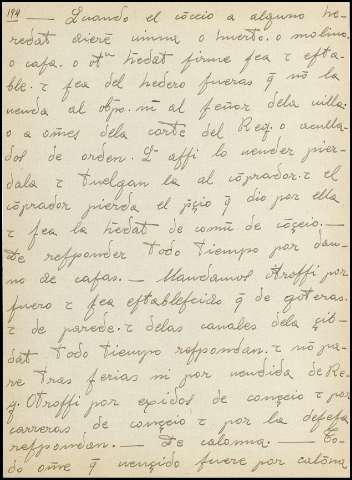 194 — Quando el cōceio a alguno he-
redat dierē uinna o huerto. o molino
o casa. o otᵃ hedat firme sea τ esta-
ble. τ sea del hedero fueras q̄ nō la
uenda al obpo. nī al señor dela uilla.
o a oms̄ dela corte del Rey. o acuēla-
dos de orden. Q̄ assi lo uender pier-
dala τ tuelgan la al cōprador. τ el
cōprador pierda el p̄çio q̄ dio por ella
τ sea la hedat de comū de cōçeio. —
De responder todo tiempo por dan-
no de casas. — Mandamos Otrossi por
fuero τ sea establesçido q̄ de goteras.
τ de parede. τ delas canales dela çib-
dat todo tiempo respondan. τ nō pa-
re tras ferias ni por uendida de Re-
y. Otrossi por exidos de conçeio τ por
carreras de conçeio τ por la defesa
respondan. — De calonna. — To-
do ome q̄ uençido fuere por calōna